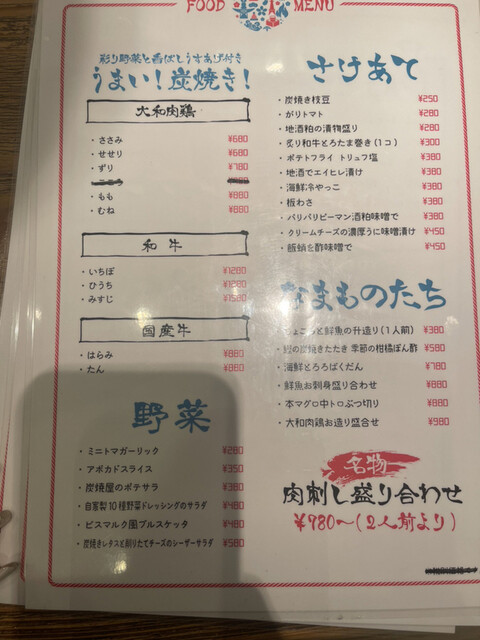 FOOD MENU
彩り野菜と香ばしうすあげ付き
うまい!炭焼き!
大和肉鶏
・ささみ ¥680
・せせり ¥680
・ずり ¥780
・もも ¥880
・むね ¥880
和牛
・いちぼ ¥1280
・ひうち ¥1280
・みすじ ¥1580
国産牛
・はらみ ¥880
・たん ¥880
野菜
・ミニトマガーリック ¥280
・アボカドスライス ¥350
・炭焼屋のポテサラ ¥380
・自家製10種野菜ドレッシングのサラダ ¥480
・ビスマルク風ブルスケッタ ¥480
・炭焼きレタスと削りたてチーズのシーザーサラダ ¥580
さけあて
・炭焼き枝豆 ¥250
・ガリトマト ¥280
・地酒粕の漬物盛り ¥280
・炙り和牛とろたま巻き(1コ) ¥300
・ポテトフライ トリュフ塩 ¥380
・地酒でエイヒレ漬け ¥380
・海鮮冷やっこ ¥380
・板わさ ¥380
・パリパリピーマン酒粕味噌で ¥380
・クリームチーズの濃厚うに味噌漬け ¥450
・飯蛸を酢味噌で ¥450
なまものたち
・ちょこっと鮮魚の升造り(1人前) ¥380
・鰹の炭焼きたたき 季節の柑橘ぽん酢 ¥580
・海鮮とろろばくだん ¥780
・鮮魚お刺身盛り合わせ ¥880
・本マグロ中トロぶつ切り ¥880
・大和肉鶏お造り盛合せ ¥980
名物
肉刺し盛り合わせ
¥980〜(2人前より)